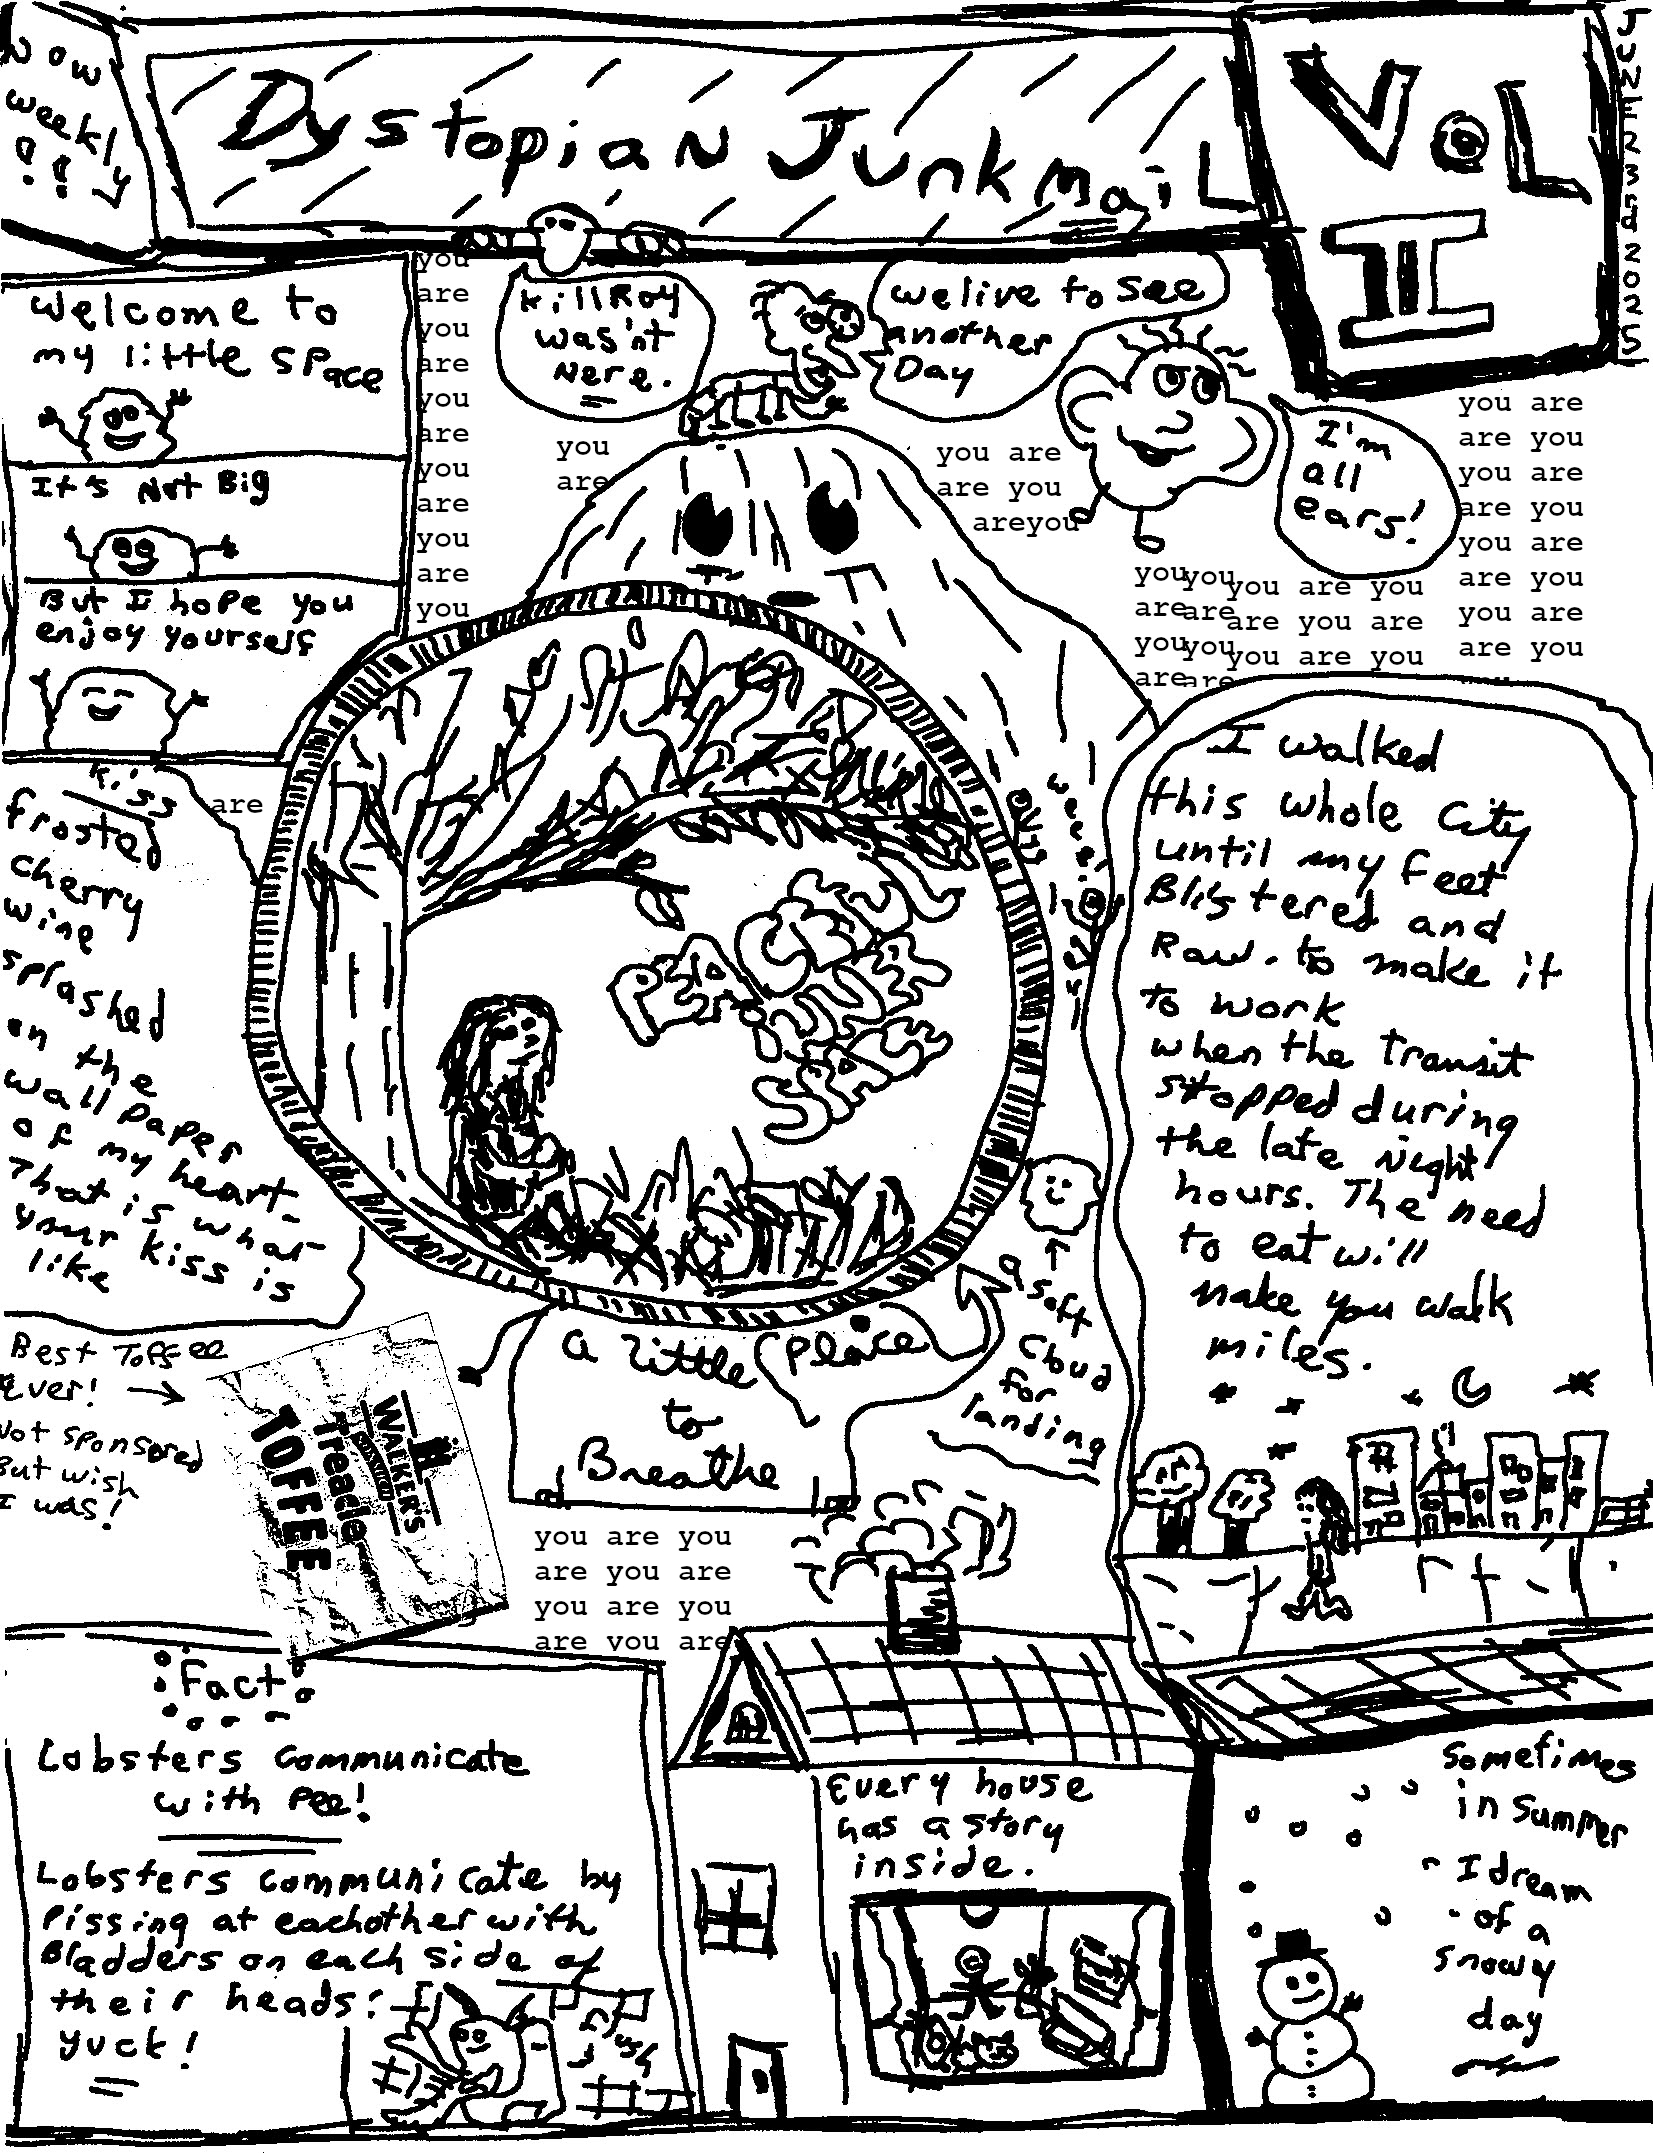 Now
weekly
!!
Dystopian Junkmail
VoL
II
JUNE 23rd 2025
Welcome to
my little space
It's Not Big
But I hope you
enjoy yourself
you
are
you
are
you
are
you
are
you
are
you
KillRoy
was'nt
Here.
we live to see
another
Day
I'm
all
ears!
you
are
you are
are you
areyou
you
are
you
are
you
are
you
are
you are you
are you are
you are you
you are
are you
you are
are you
you are
are you
you are
are you
kiss
are
frosted
cherry
wine
splashed
on the
wall paper
of my heart
That is what
your kiss is
like
I walked
this whole City
until my feet
Blistered and
Raw. to make it
to work
when the transit
stopped during
the late Night
hours. The need
to eat will
make you walk
miles.
weee!
a soft
cloud
for
landing
a little place
to
Breathe
Best Toffee
Ever! →
Not sponsored
But wish
I was!
WALKER'S
NONSUCH
Treacle
TOFFEE
you are you
are you are
you are you
are you are
Fact
Lobsters communicate
with Pee!
Lobsters communicate by
Pissing at eachother with
Bladders on each side of
their heads:
yuck!
Every house
has a story
inside.
Sometimes
in summer
I dream
of a
snowy
day